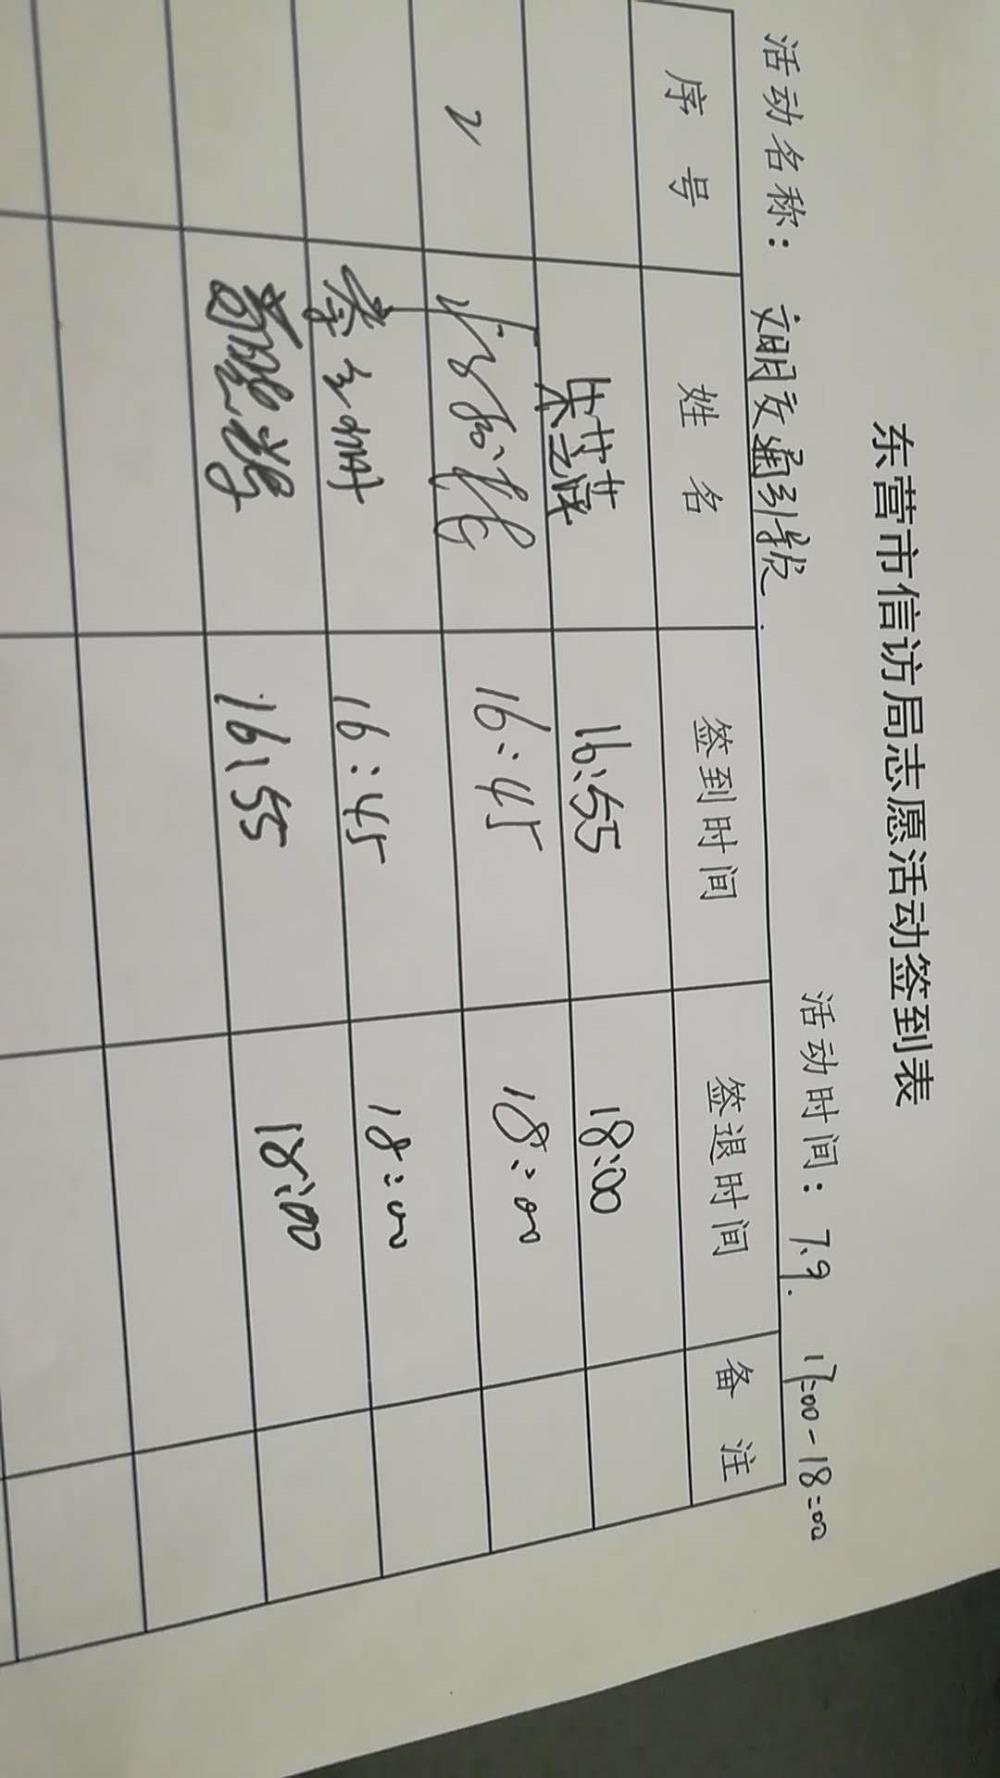 东营市信访局志愿活动签到表
活动名称：文明交通引导 活动时间：7.9. 17:00-18:00
序号 姓名 签到时间 签退时间 备注
16:55 18:00
2 16:45 18:00
16:45 18:00
16:55 18:00